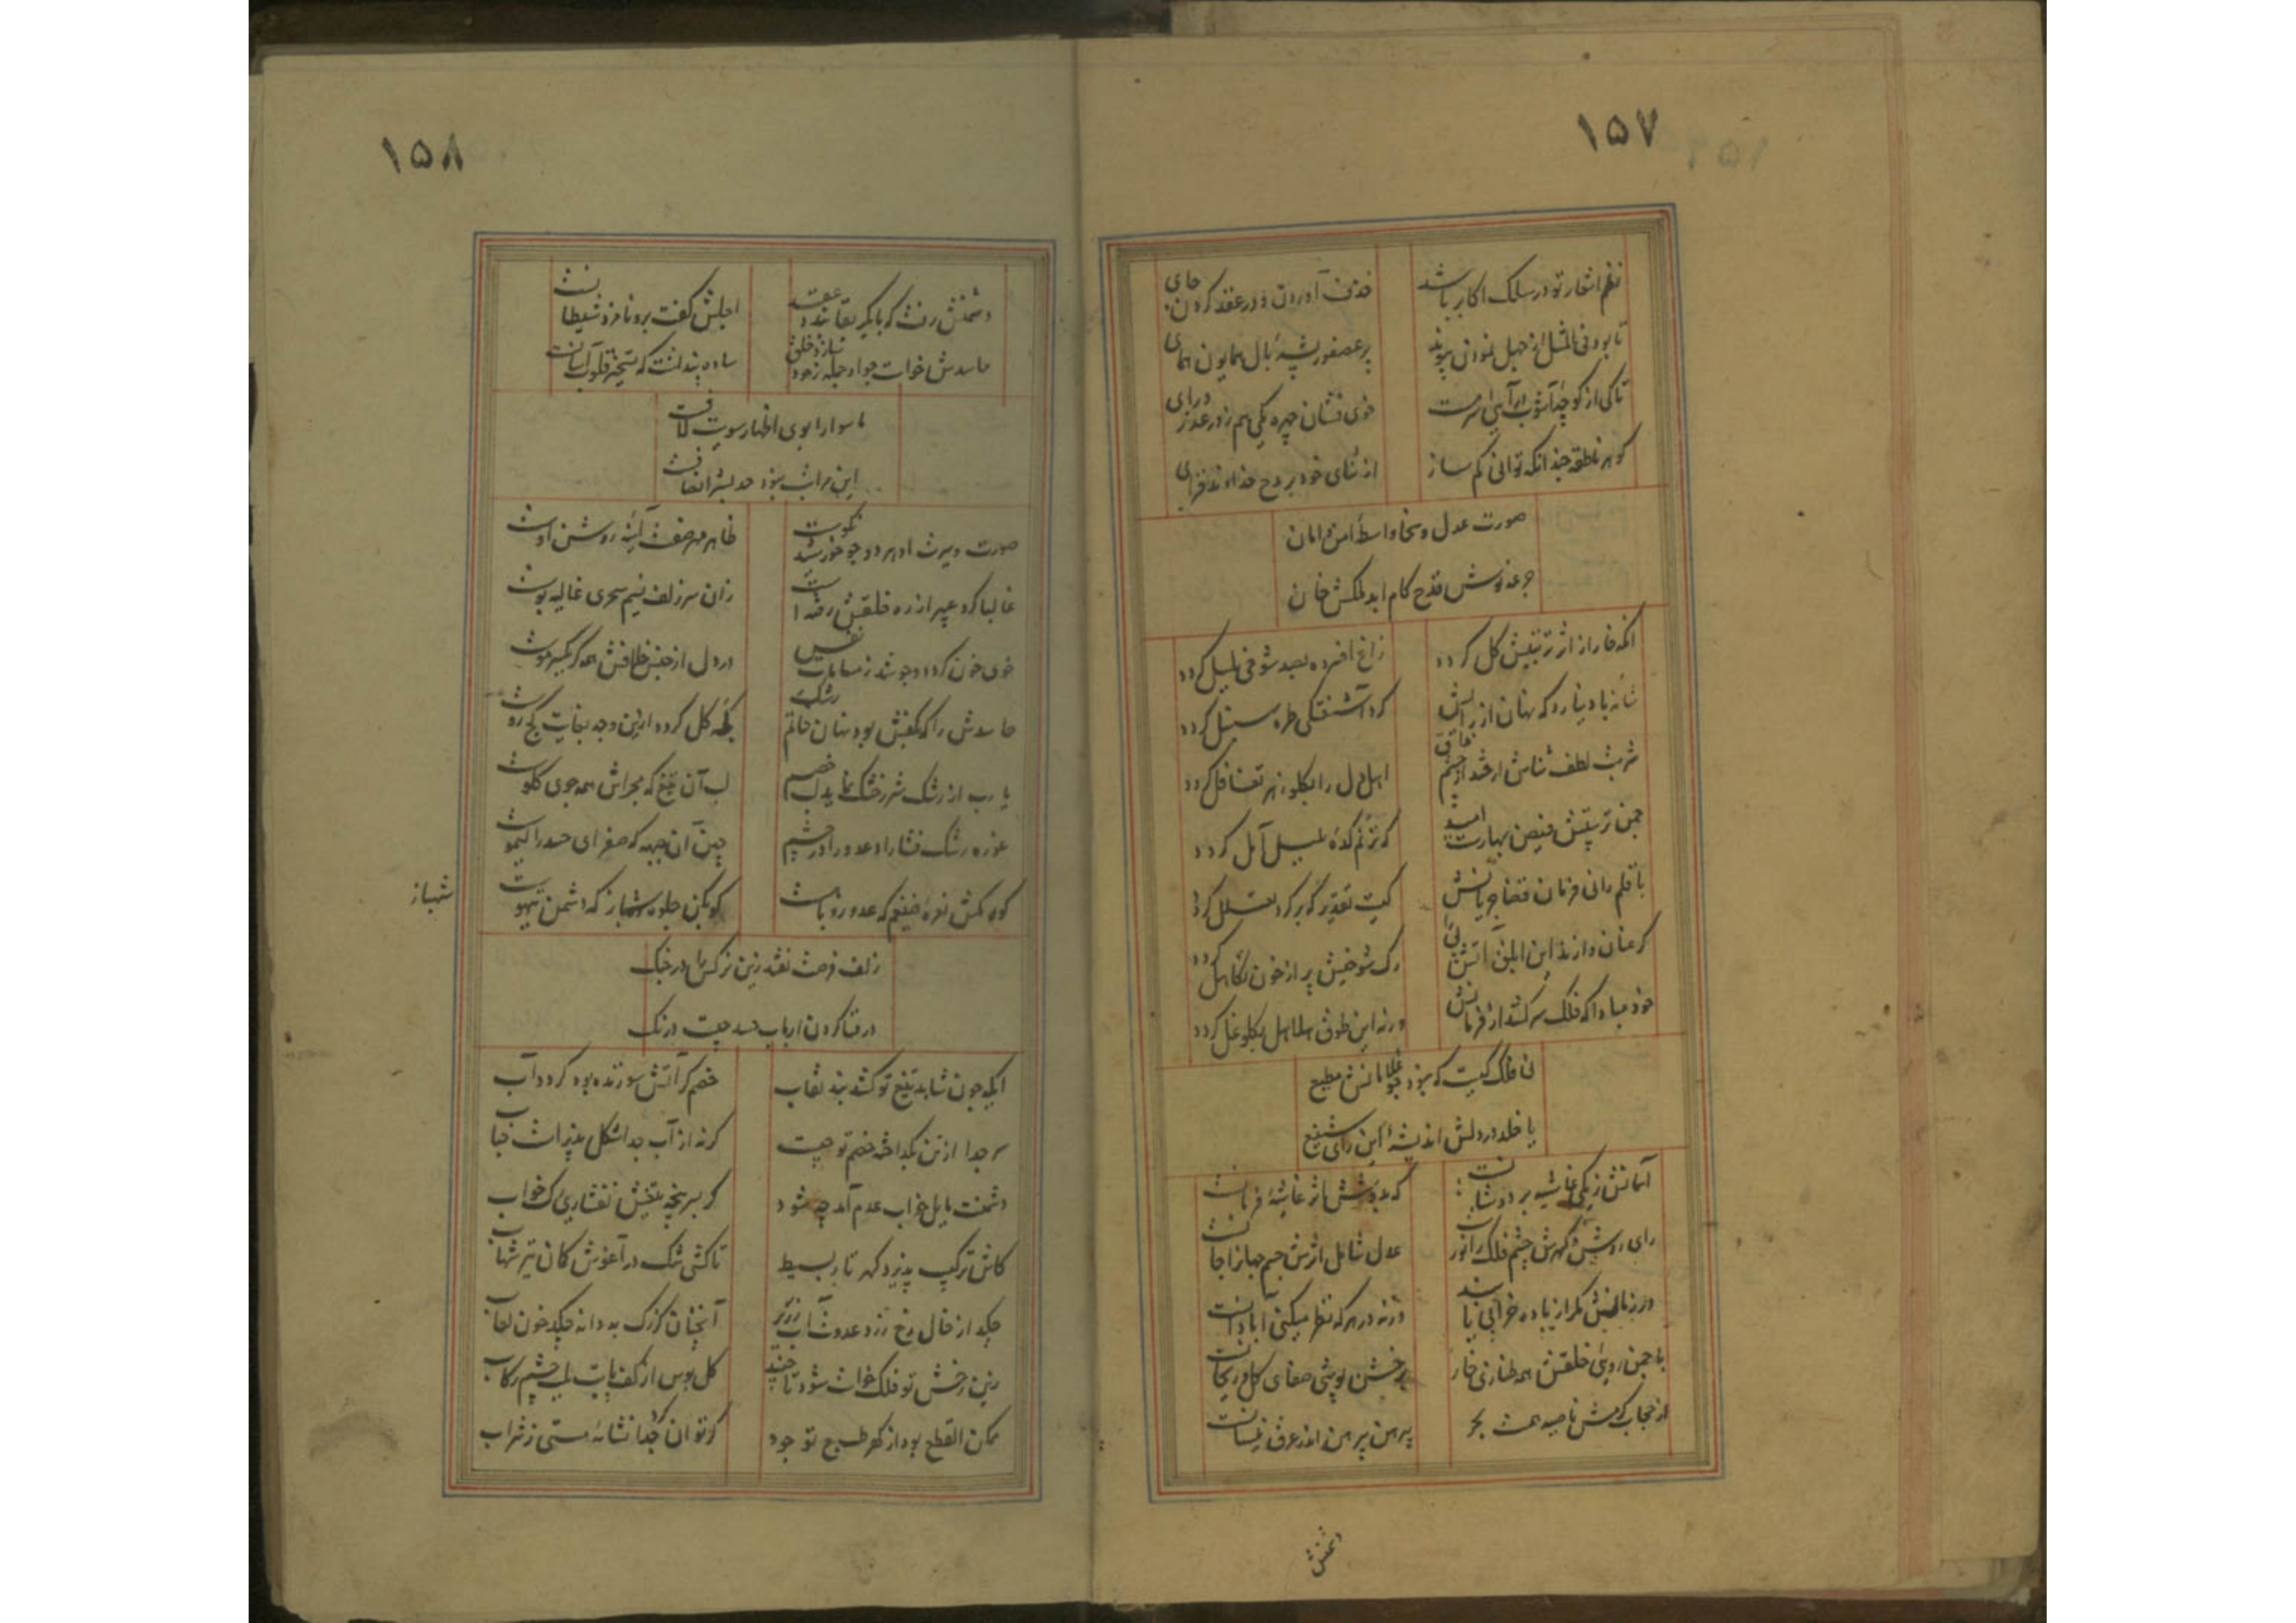 ۱۵۷
نظم اشعار تو در سلک اکابر باشد
خذف آوردن و در عقد گهر کردن جای
تا بود فی المثل از جهل نمودن پیوند
پر عصفور بشه بال همایون همای
تاکی از کوچه آشوب
خوی فشان چهره یکی هم ز در عذر درای
گوهر ناطقه چندانکه توانی کم ساز
از ثنای خود بر مدح خداوند فزای
صورت عدل و سخا واسطه امن و امان
جرعه نوش قدح کام ابد لمکش خان
آنکه خار از اثر تربیتش گل گردد
زاغ افسرده بصد شوخی بلبل گردد
شانه باد نیارد که نهان از رایش
گرد آشفتگی طره سنبل گردد
شربت لطف شناس ار چشد از خشم
اهل دل را بگلو زهر تغافل گردد
چمن تربیتش فیض بهارست امید
که ترنم کده بلبل آمل گردد
با قلم رانی فرمان قضا جریانش
کیست تقدیر که بر گرد تعلل گردد
گر عنان دارند این ابلق آتش پی
رگ شوخیش پر از خون تکاهل گردد
خود مبادا که فلک سر کشد از فرمانش
ورنه این طوق بگلو غل گردد
نی فلک کیست که نبود چو غلامانش مطیع
یا خلد در دلش اندیشه این رای شنیع
آسمانش ز یکی غاشیه بر دوشانست
که بدوشش اثر غاشیه فرمانست
رای روشن گهرش چشم فلک را نور
عدل شامل اثرش جسم جهان را جانست
در زمانش مگر از باده خرابی باشد
ورنه در هر که نظر میکنی آبادانست
با چمن رویی خلقش همه طنازی خار
بر خشن پوشی صفای گل و ریحانست
از حجاب کرمش ناصیه بحر
پیرهن پیرهن اندر عرق نیسانست
دشمنش
۱۵۸
دشمنش رفت که با گیر بقا بندد عقد
اجلش گفت برو نامزد شیطانست
حاسدش خواست جواد جمله ز خود خلق
ساده پنداشت که تسخیر قلوب آسانست
ماسوا را بوی اظهار سویت لافست
این مراتب نبود حد بشر انصافست
صورت و سیرت او هر دو چو خورشید نکوست
ظاهر مهر صفت آینه روشن اوست
غالبا گرد عبیر از ره خلقش رفته است
زان سر زلف نسیم سحری غالیه بوست
خوی خون گردد و جوشد ز مسامات نفس
در دل از جنس خلافش همه گر یکسر موست
حاسدش را که بکفش بود نهان خاتم رشک
گل کرده ازین وجه بغایت کج روست
یا رب از رشک شرر خشک نماید لب خصم
لب آن تیغ که مجراش همه جوی گلوست
غوره رشک فشارد عدو را در چشم
چین آن جبهه که صفرای حسد را لیموست
گو مکش نعره ضیغم که عدو روباهست
گو مکن جلوه شهباز که دشمن تیهوست
شهباز
زلف فرصت نفتد زین نرگس را در چنگ
در فنا کردن ارباب حسد چیست درنگ
ایکه چون شاهد تیغ تو کشد بند نقاب
خصم گر آتش سوزنده بود گردد آب
سر جدا از تن بگداخته خصم تو چیست
گر نه از آب جدا شکل پذیرست حباب
دشمنت مایل خواب عدم آمد چه شود
گر بسر پنجه تیغش نفشاری رگ خواب
کاش ترکیب پذیرد گهر تار بسیط
تا کشی تنگ در آغوش کمان تیر شهاب
چکد از خال رخ زرد عدوت آب زریر
آنچنان کز رگ بهدانه چکد خون لعاب
زین رخش تو فلک خواست شود تا چیند
گل بوس از کف پایت بلب چشم رکاب
ممکن القطع بود از گهر طبع تو جود
گر توان کرد جدا نشائه مستی ز شراب